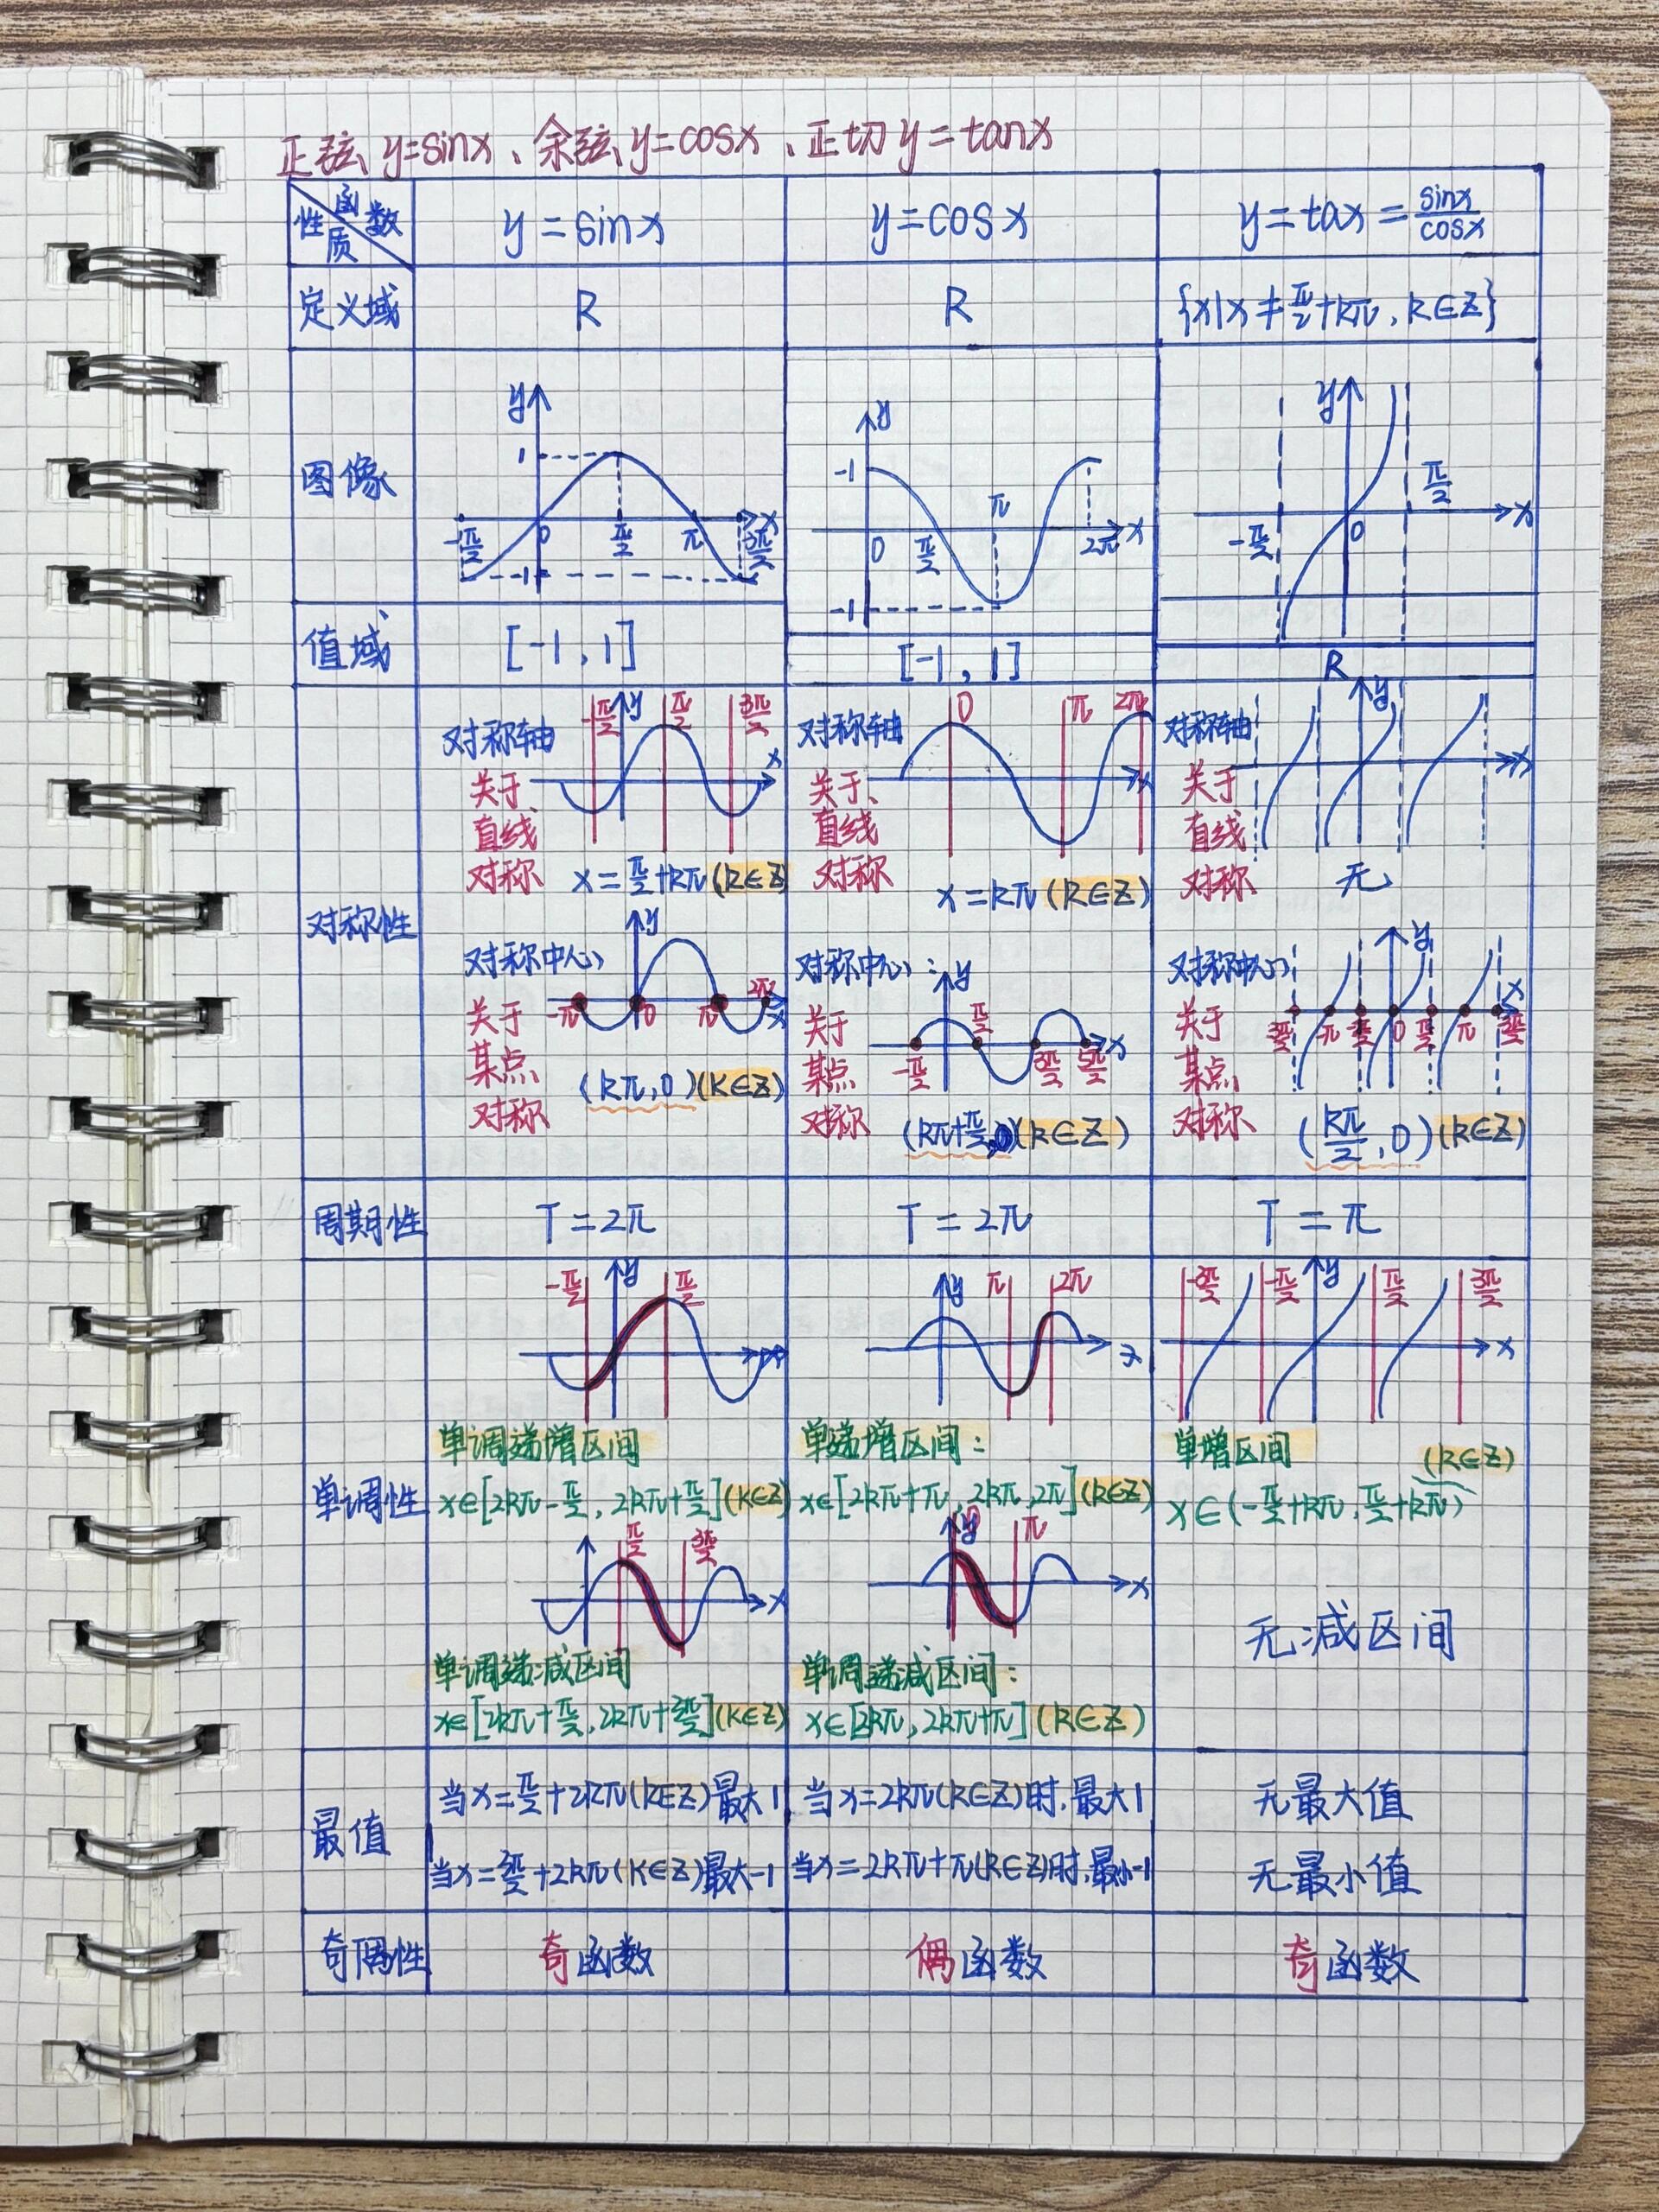 正弦y=sinx、余弦y=cosx、正切y=tanx
函数
性质
y=sinx
y=cosx
y=tax=sinx/cosx
定义域
R
R
{x|x≠π/2+kπ,k∈Z}
图像
y
1
-π/2 0 π/2 π 3π/2 x
-1
y
-1
π
0 π/2 2π x
-1
y
π/2
-π/2 0 x
值域
[-1,1]
[-1,1]
R
对称性
对称轴
-π/2 y π/2 3π/2
x
关于
直线
对称 x=π/2+kπ(k∈Z)
对称轴
0 π 2π
x
关于
直线
对称
x=kπ(k∈Z)
对称轴
y
x
关于
直线
对称 无
对称中心
y
-π 0 π 2π x
关于
某点
对称
(kπ,0)(k∈Z)
对称中心:
y
-π/2 π/2 3π/2 5π/2 x
关于
某点
对称
(kπ+π/2,0)(k∈Z)
对称中心
y
x
3π/2 -π π/2 0 π/2 π 3π/2
关于
某点
对称
(kπ/2,0)(k∈Z)
周期性
T=2π
T=2π
T=π
单调性
-π/2 y π/2
x
单调递增区间
x∈[2kπ-π/2,2kπ+π/2](k∈Z)
π/2 3π/2
x
单调递减区间
x∈[2kπ+π/2,2kπ+3π/2](k∈Z)
y π 2π
x
单递增区间:
x∈[2kπ+π,2kπ,2π](k∈Z)
0 y π
x
单调递减区间:
x∈[2kπ,2kπ+π](k∈Z)
-3π/2 -π/2 y π/2 3π/2
x
单增区间
(k∈Z)
x∈(-π/2+kπ,π/2+kπ)
无减区间
最值
当x=π/2+2kπ(k∈Z)最大1
当x=3π/2+2kπ(k∈Z)最大-1
当x=2kπ(k∈Z)时,最大1
当x=2kπ+π(k∈Z)时,最小-1
无最大值
无最小值
奇偶性
奇函数
偶函数
奇函数